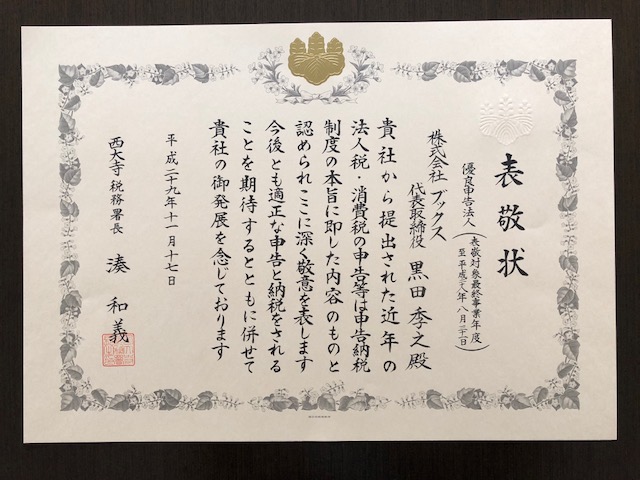 表敬状
優良申告法人
（表敬対象最終事業年度
至平成二八年八月三十一日）
株式会社ブックス
代表取締役 黒田季之殿
貴社から提出された近年の
法人税・消費税の申告等は申告納税
制度の本旨に即した内容のものと
認められここに深く敬意を表します
今後とも適正な申告と納税をされる
ことを期待するとともに併せて
貴社の御発展を念じております
平成二十九年十一月十七日
西大寺税務署長 湊和義